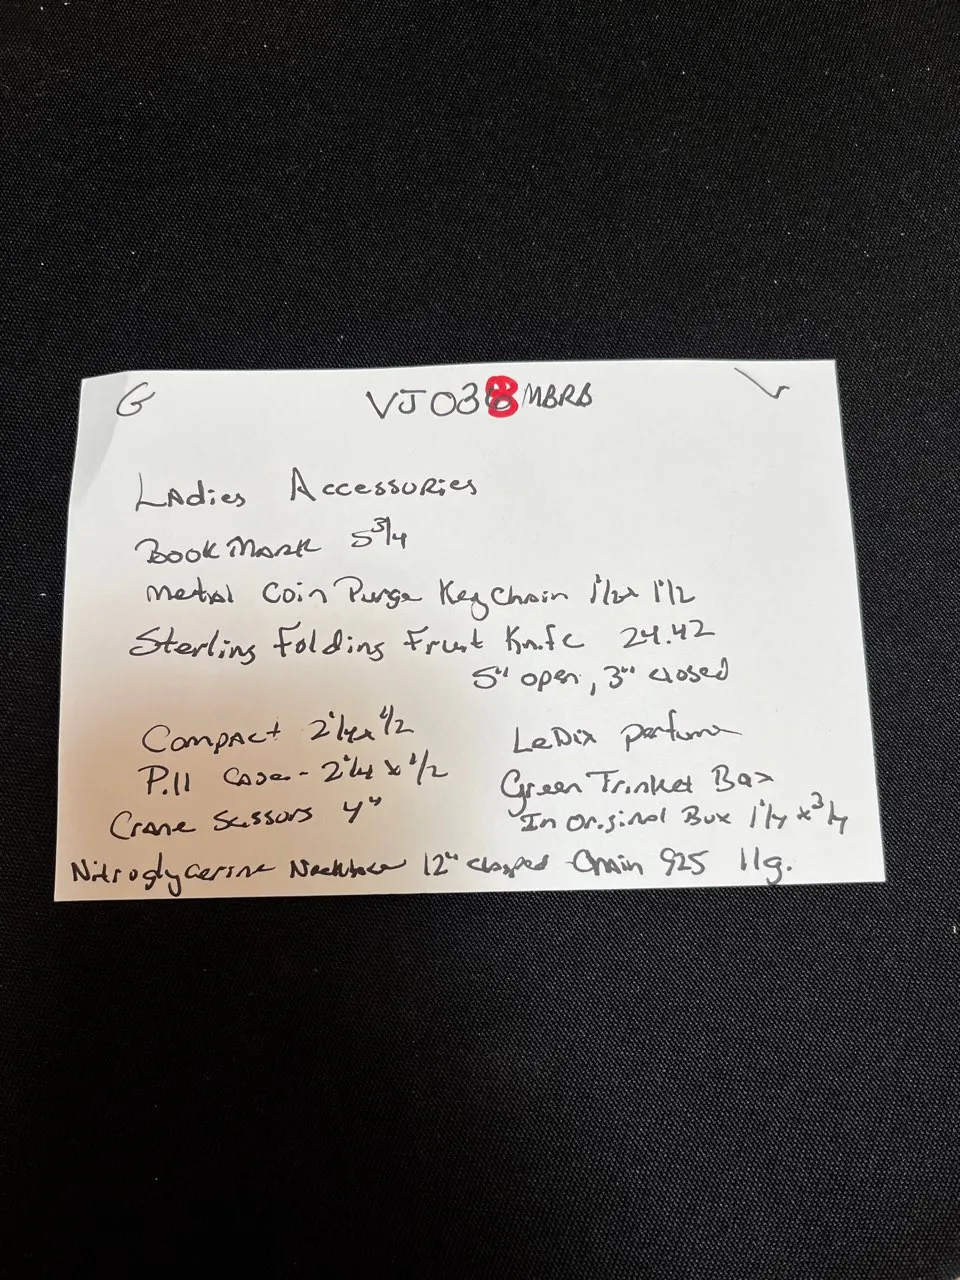 G VJ038 MBRB
Ladies Accessories
Book Mark 5 3/4
Metal Coin Purse Key Chain 1 1/2 x 1 1/2
Sterling Folding Fruit Knife 24.42
5" open, 3" closed
Compact 2 1/4 x 1/2
Pill Case - 2 1/4 x 1/2
Crane Scissors 4"
LeDix perfume
Green Trinket Box
In Original Box 1 1/4 x 3/4
Nitroglycerine Necklace 12" clasped Chain 925 11g.